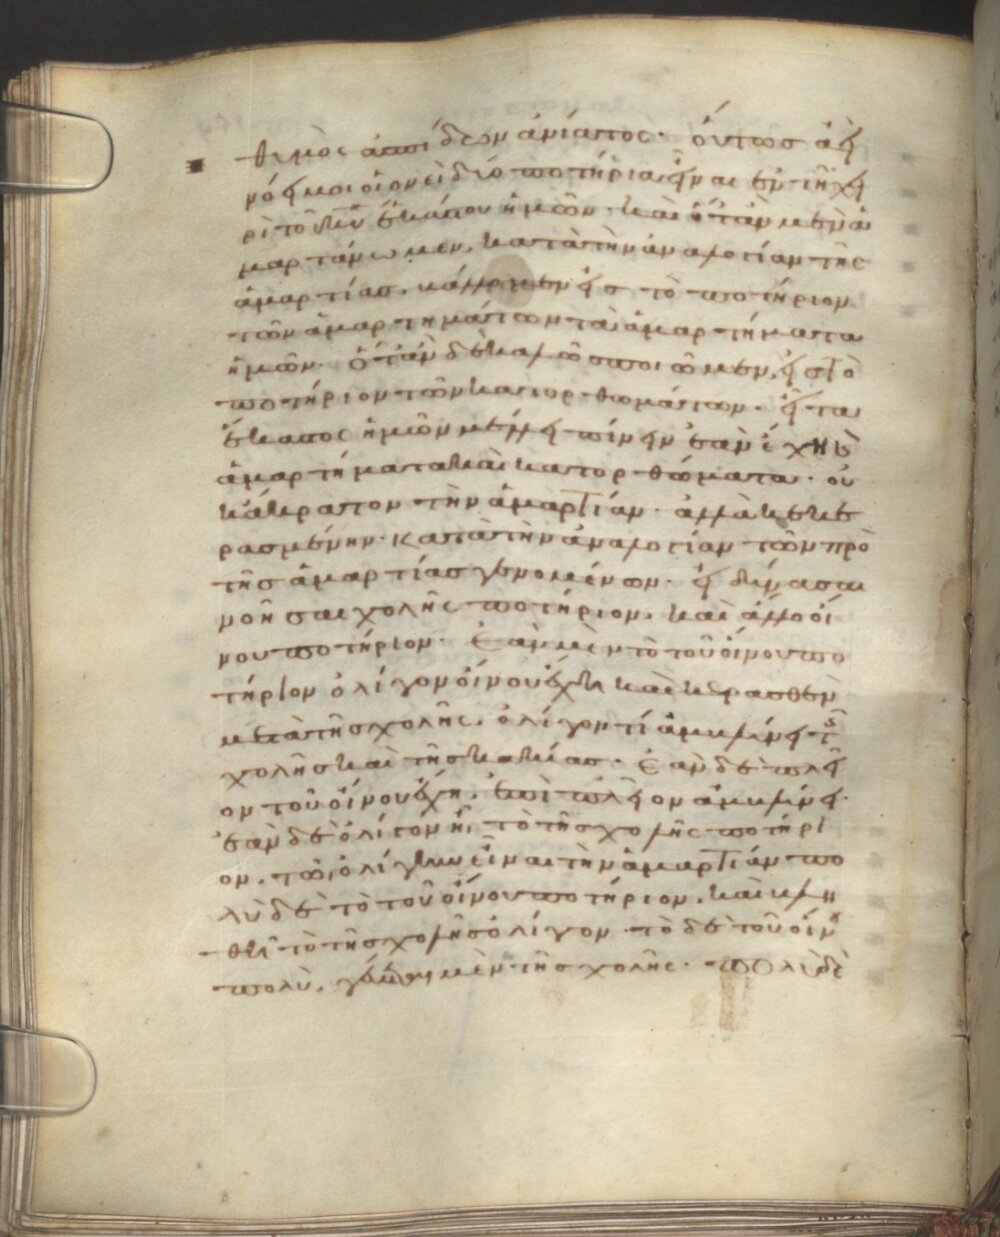 θυμὸς ἀσπίδων ἀνίατος· οὕτως ἀεὶ
νόει μοι οἱονεὶ δύο ποτήρια εἶναι ἐν τῆ χει
ρὶ τοῦ κυ ἑκάστου ἡμῶν· καὶ ὅταν μὲν ἁ
μαρτάνωμεν, κατὰ τὴν ἀναλογίαν τῆς
ἁμαρτίας, βάλλομεν εἰς τὸ ποτήριον
τῶν ἁμαρτημάτων τὰ ἁμαρτήματα
ἡμῶν· ὅταν δὲ καλῶς ποιῶμεν, εἰς τὸ
ποτήριον τῶν κατορθωμάτων· εἶτα
ἕκαστος ἡμῶν μέλλει πίνειν ἐὰν ἔχη
ἁμαρτήματα καὶ κατορθώματα· οὐ
κ ἄκρατον τὴν ἁμαρτίαν· ἀλλὰ κεκε
ρασμένην· κατὰ τὴν ἀναλογίαν τῶν πρὸ
τῆς ἁμαρτίας γενομένων· εἰ δύνασαι
νοῆσαι χολῆς ποτήριον, καὶ ἄλλο οἴ
νου ποτήριον· Ἐὰν μὲν τὸ τοῦ οἴνου πο
τήριον ὀλίγον οἴνου ἔχη καὶ κερασθὲν
μετὰ τῆς χολῆς, ὀλίγον τί ἀμβλύνει τῆς
χολῆς καὶ τῆς κακίας· Ἐὰν δὲ πλεῖ
ον τοῦ οἴνου ἔχη, ἐπὶ πλεῖον ἀμβλύνει·
ἐὰν δὲ ὀλίγον ἦ, τὸ τῆς χολῆς ποτήρι
ον, τῶ ὀλίγην εἶναι τὴν ἁμαρτίαν πο
λὺ δὲ τὸ τοῦ οἴνου ποτήριον, καὶ βλη
θῆ τὸ τῆς χολῆς ὀλίγον· τὸ δὲ τοῦ οἴνου
πολὺ, μὲν τῆς χολῆς· πολὺ δὲ